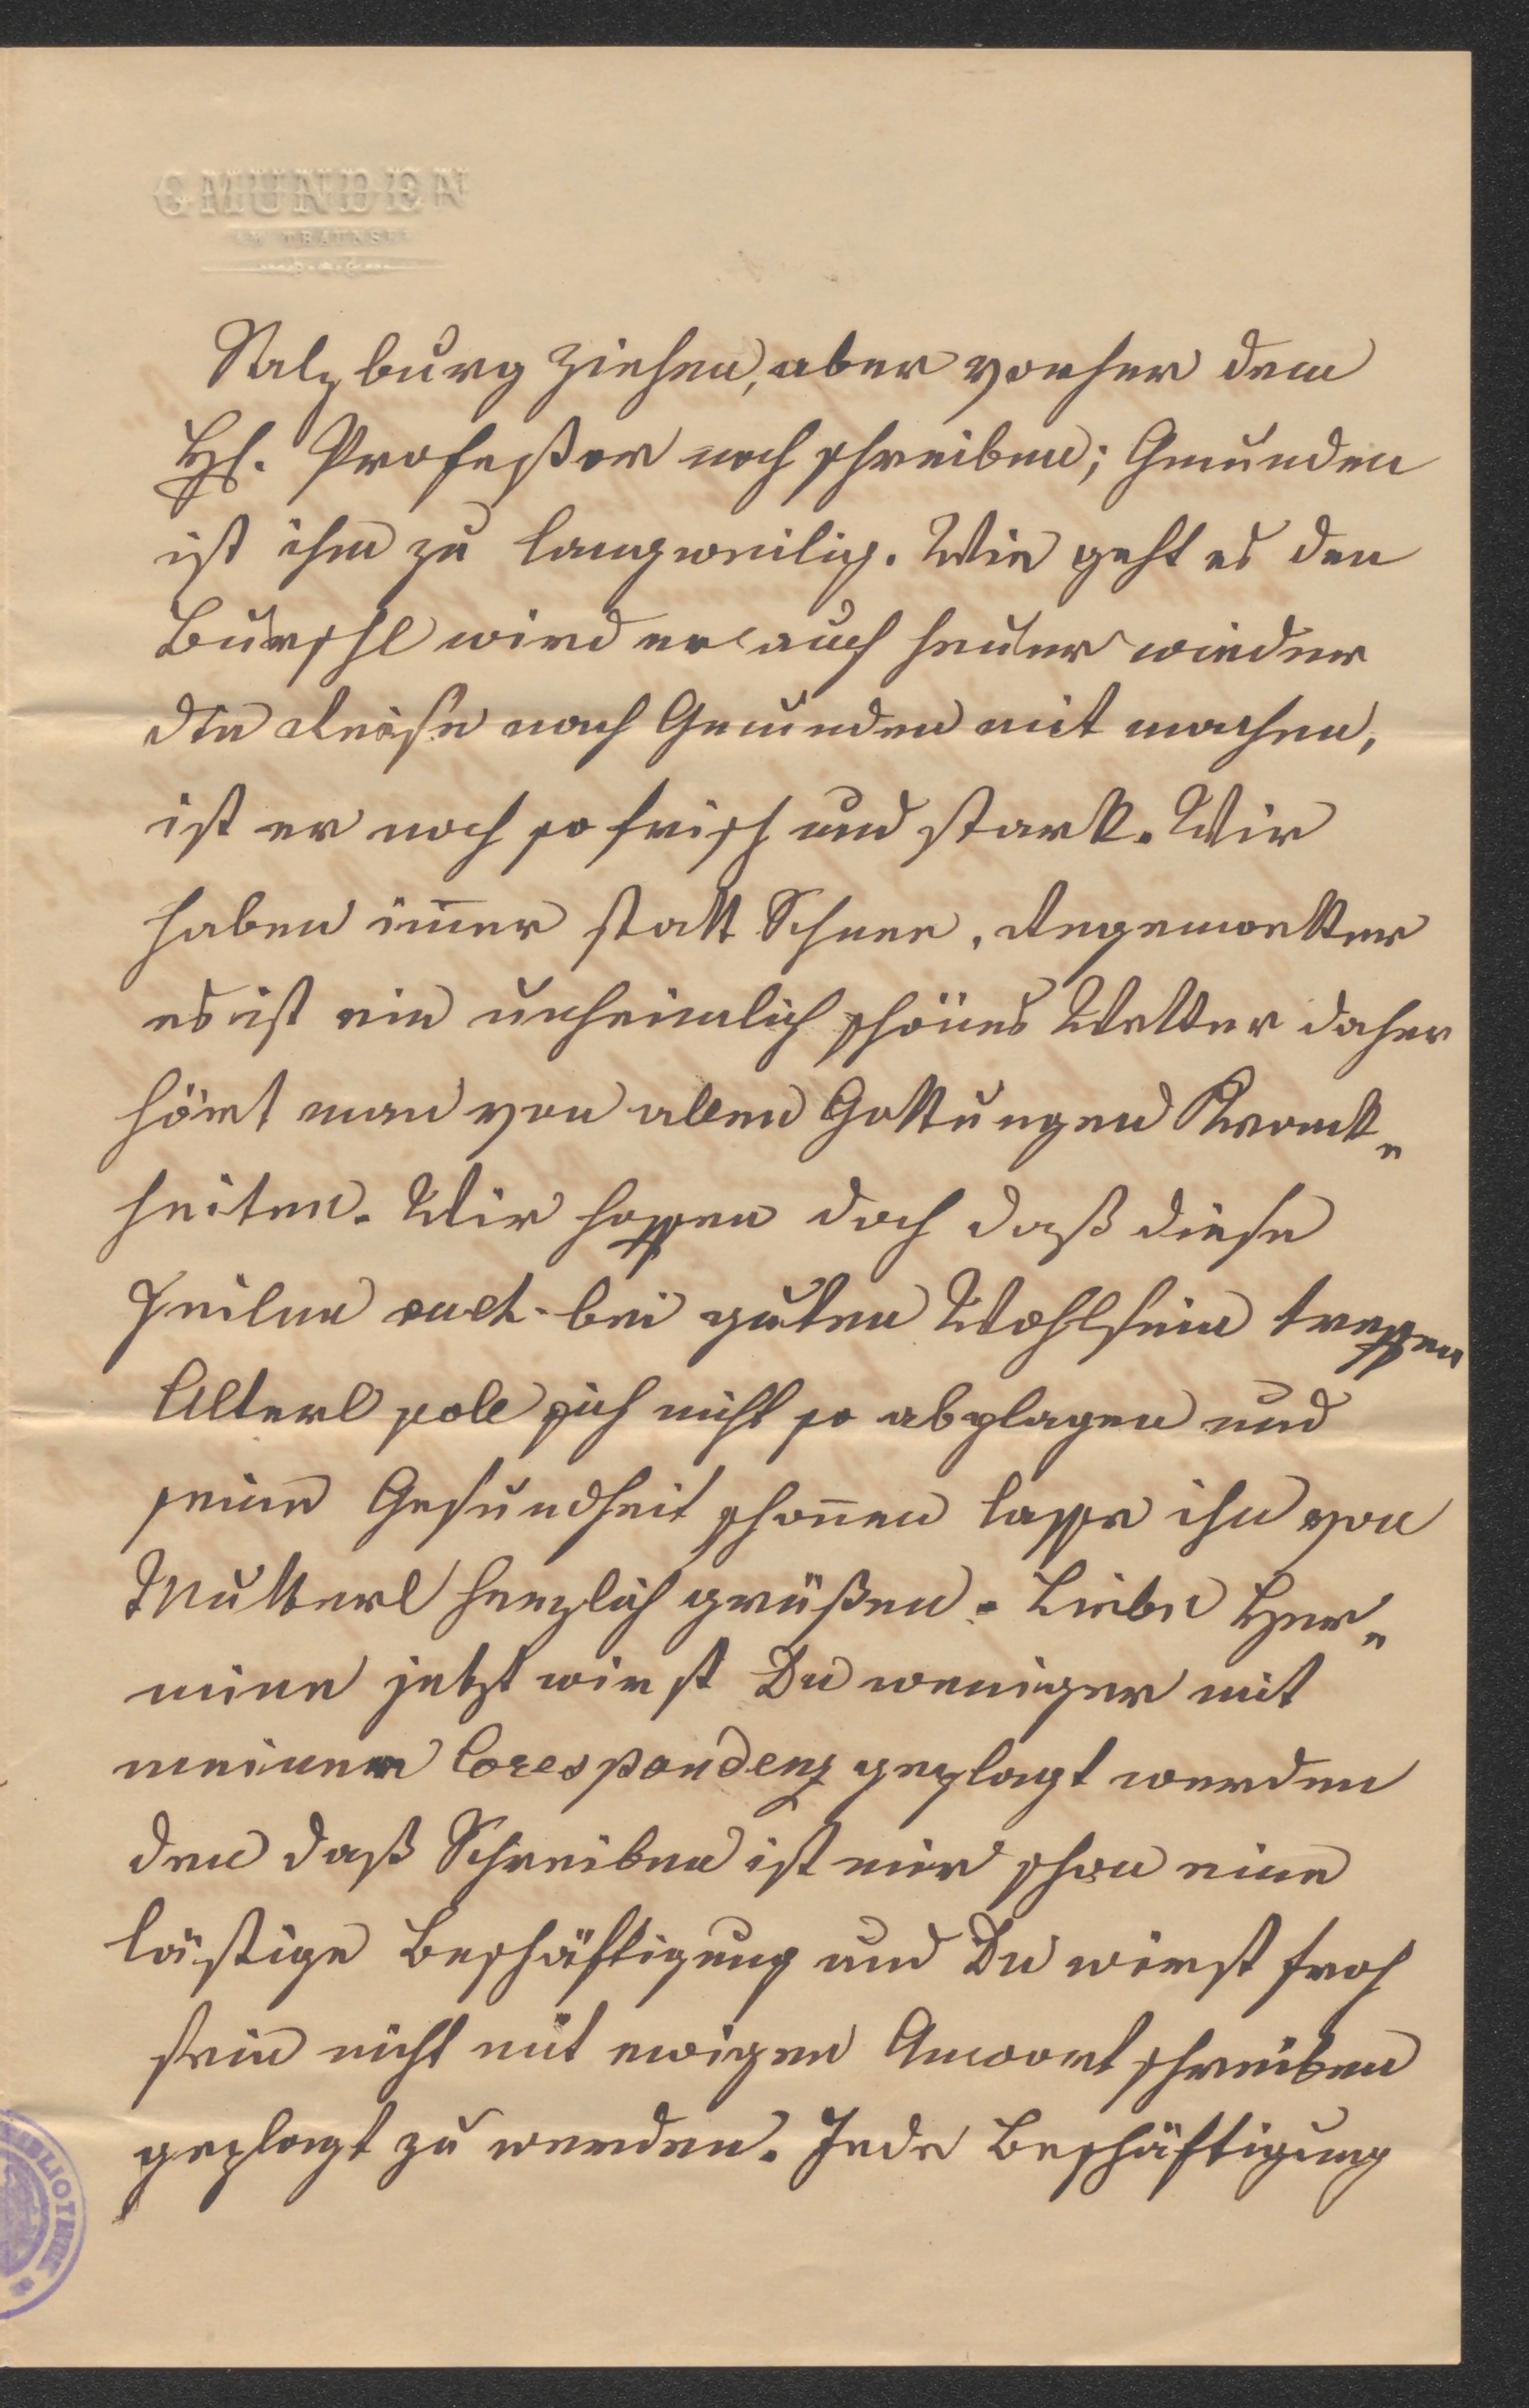 GMUNDEN
AM TRAUNSEE
Salzburg ziehen, aber vorher dem
H. Profeßor noch schreiben; Gmunden
ist ihm zu langweilig. Wie geht es den
Burschl wird er auch heuer wieder
die Reise nach Gmunden mit machen,
ist er noch so frisch und stark. Wir
haben im̄er statt Schnee, Regenwetter
es ist ein unheimlich schönes Wetter daher
hört man von allen Gattungen Krank„
heiten. Wir hoffen doch daß diese
Zeilen euch bei guten Wohlsein treffen
Alterl soll sich nicht so abplagen und
seine Gesundheit schon̄en lasse ihn von
Mutterl herzlich grüßen. Liebe Her„
mine jetzt wirst Du weniger mit
meiner Corespondenz geplagt werden
den daß Schreiben ist mir schon eine
lästige Beschäftigung und Du wirst froh
sein nicht mit ewigen Anwort schreiben
geplagt zu werden. Jede Beschäftigung
BIBLIOTHEK